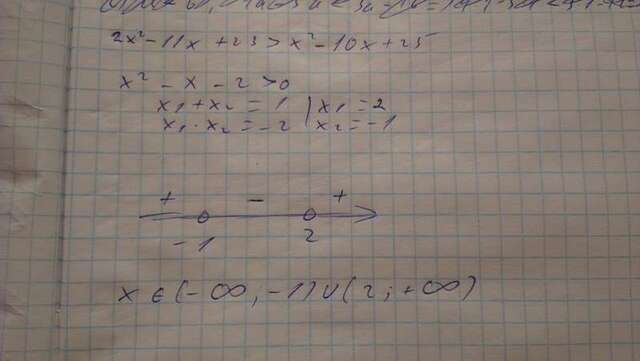 2x²-11x+23>x²-10x+25
x²-x-2>0
x₁+x₂=1 | x₁=2
x₁·x₂=-2 | x₂=-1
+ - +
-1 2
x∈(-∞;-1)∪(2;+∞)